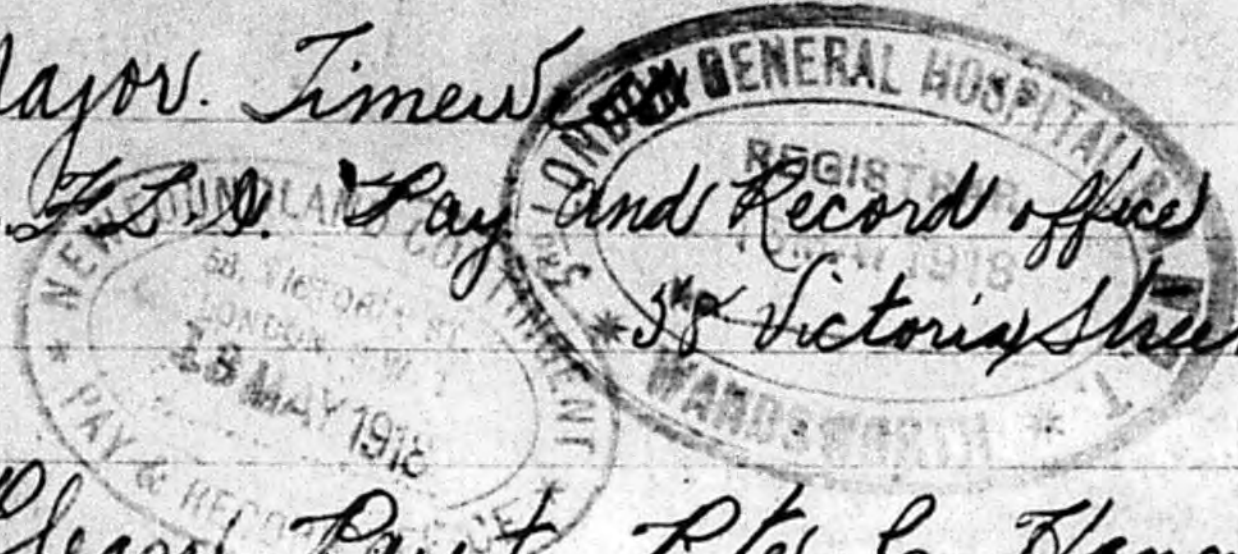 Major. Timewell
Pay and Record office
58 Victoria Street
Please Pay to Pte
3RD LONDON GENERAL HOSPITAL
REGISTRAR
MAY 1918
* WANDSWORTH *
NEWFOUNDLAND CONTINGENT
58, VICTORIA ST.
LONDON, S.W.
MAY 1918
* PAY & RECORD OFFICE *